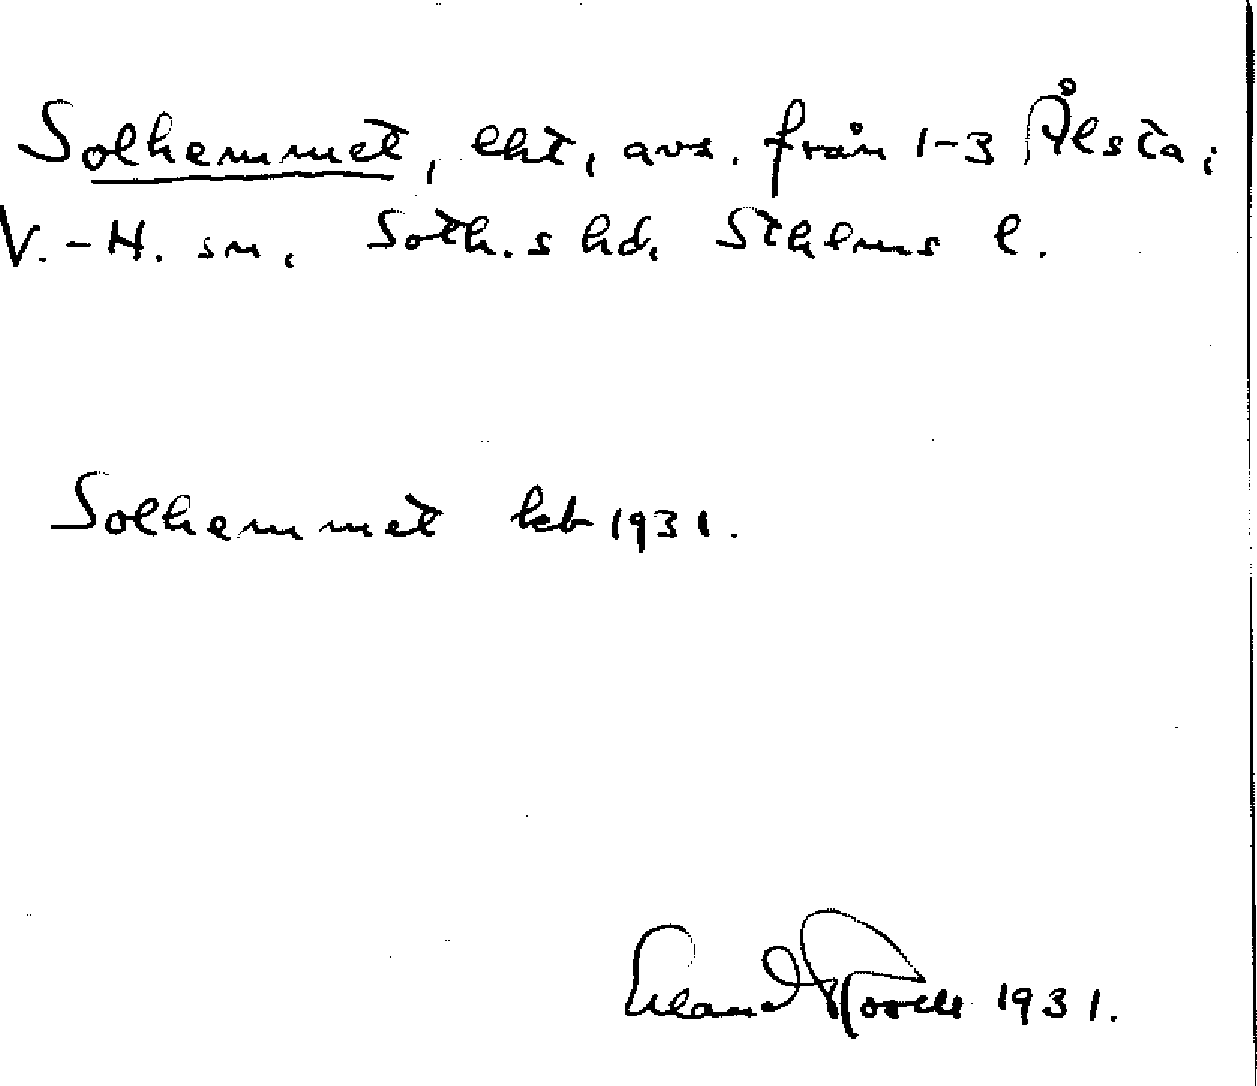 Solhemmet, lht, avs. från 1-3 Ålsta,
V.-H. sn, Soth.s hd, Sthlms l.
Solhemmet kb 1931.
Erland 1931.